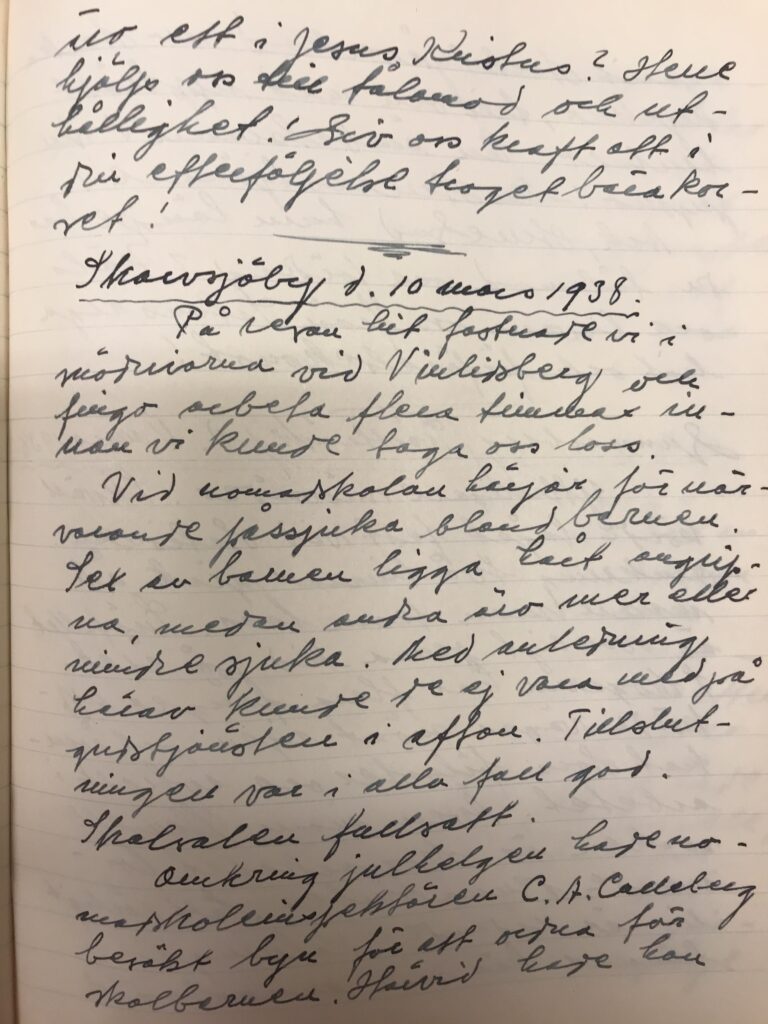 äro ett i Jesus Kristus? Herre
hjälp oss till tålamod och ut-
hållighet! Giv oss kraft att i
din efterföljelse troget bära kor-
set!
Skansjöby d. 10 mars 1938.
På resan hit fastnade vi i
snödrivorna vid Vinlidsberg och
fingo arbeta flera timmar in-
nan vi kunde taga oss loss.
Vid nomadskolan härjar för när-
varande påssjuka bland barnen.
Sex av barnen ligga hårt angrip-
na, medan andra äro mer eller
mindre sjuka. Med anledning
härav kunde de ej vara med på
gudstjänsten i afton. Tillslut-
ningen var i alla fall god.
Skolsalen fullsatt.
Omkring julhelgen hade no-
madskoleinspektören C. A. Calleberg
besökt byn för att ordna för
skolbarnen. Härvid hade han